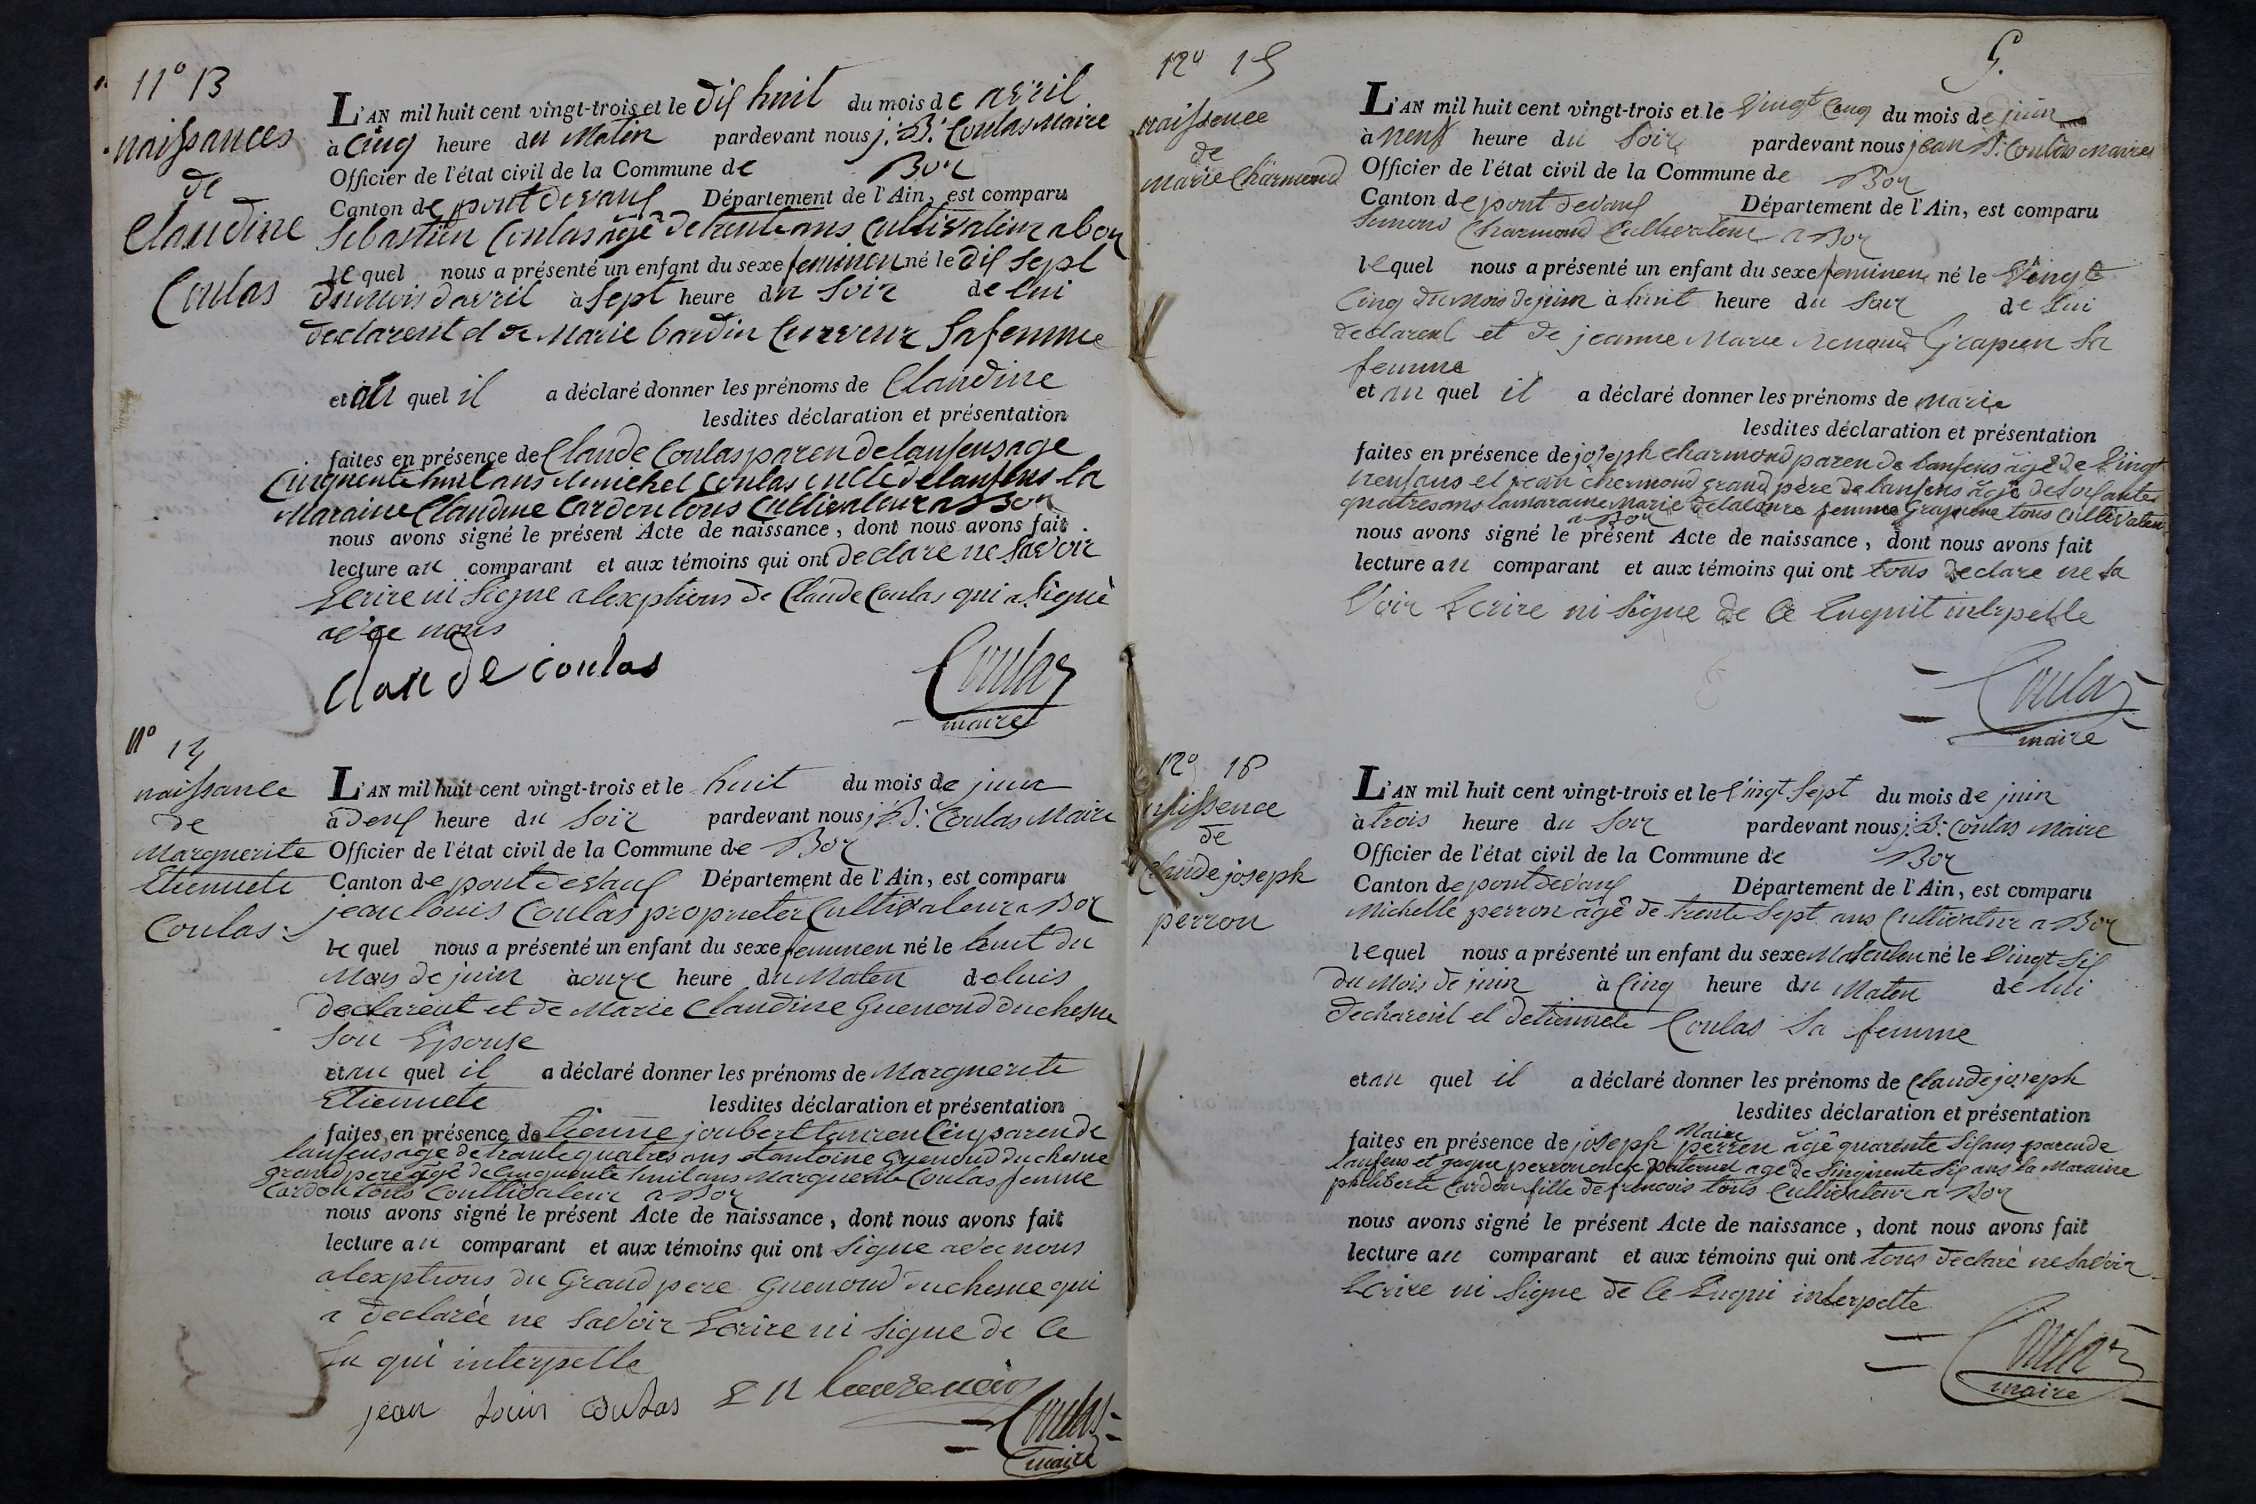 n° 13
naissances
de
Claudine
Coulas
L'AN mil huit cent vingt-trois et le dix huit du mois de avril
à cinq heure du Matin pardevant nous j. B. Coulas Maire
Officier de l'état civil de la Commune de Boz
Canton de pont devaux Département de l'Ain, est comparu
Sebastien Coulas agê de trente ans Cultivateur a boz
le quel nous a présenté un enfant du sexe feminen né le dix Sept
du mois davril à Sept heure du Soir de lui
declarent et de Marie bardin Sa femme
et au quel il a déclaré donner les prénoms de Claudine
lesdites déclaration et présentation
faites en présence de Claude Coulas paren de lanfens age
Cinquente huit ans Coulas de lanfens la
Maraine Claudine Cardon tous Cultivateur a Boz
nous avons signé le présent Acte de naissance, dont nous avons fait
lecture au comparant et aux témoins qui ont declare ne Savoir
Ecrire ni Signe alexptions de Claude Coulas qui a Signè
avec nous
claude coulas
Coulas
maire
n° 14
naissance
de
Marguerite
Etiennete
Coulas
L'AN mil huit cent vingt-trois et le huit du mois de juin
à deux heure du Soir pardevant nous j. B. Coulas Maire
Officier de l'état civil de la Commune de Boz
Canton de pont devaux Département de l'Ain, est comparu
jean louis Coulas proprieter Cultivateur a Boz
le quel nous a présenté un enfant du sexe feminen né le huit du
Mois de juin à onze heure du Maten de luis
declarent et de Marie Claudine Guenoud duchesne
Son Epouse
et au quel il a déclaré donner les prénoms de Marguerite
Etiennete
lesdites déclaration et présentation
faites en présence de tienne joubert paren de
lanfens age de trante quatres ans et antoine Guenoud duchesne
grend pere agê de Cinquente huit ans Marguerite Coulas femme
Cardon tous Coultivateur a Boz
nous avons signé le présent Acte de naissance, dont nous avons fait
lecture au comparant et aux témoins qui ont Signe avec nous
alexptions du Grand pere Guenoud duchesne qui
a declarée ne Savoir Ecrire ni Signe de Ce
qui interpelle
jean Louis coulas
Coulas
maire
5.
n° 15
naissence
de
Marie Charmond
L'AN mil huit cent vingt-trois et le Vingt Cenq du mois de juin
à neuf heure du Soir pardevant nous jean B. Coulas Maire
Officier de l'état civil de la Commune de Boz
Canton de pont devaux Département de l'Ain, est comparu
Simond Charmond Cultivateur a Boz
lequel nous a présenté un enfant du sexe feminen né le Vengt
Cinq du Mois de juin à huit heure du Soir de lui
declarent et de jeanne Marie Renoud Grapien Sa
femme
et au quel il a déclaré donner les prénoms de Marie
lesdites déclaration et présentation
faites en présence de joseph Charmond paren de lanfens agê de Vingt
neuf ans et jean Chermond grand pere de lanfens agê de Soisantes
quatres ans la maraine Marie femme Grapine tous Cultivateur
a Boz
nous avons signé le présent Acte de naissance, dont nous avons fait
lecture au comparant et aux témoins qui ont tous declare ne Sa
Voir Ecrire ni Signe de Ce
Coulas
maire
n° 16
naissence
de
Claude joseph
perron
L'AN mil huit cent vingt-trois et le Vingt Sept du mois de juin
à trois heure du Soir pardevant nous j. B. Coulas Maire
Officier de l'état civil de la Commune de Boz
Canton de pont devaux Département de l'Ain, est comparu
Michelle perron agê de trente Sept ans Cultivateur a Boz
lequel nous a présenté un enfant du sexe Masculen né le Vingt Six
du Mois de juin à Cinq heure du Maten de lui
declarent et detiennete Coulas Sa femme
et au quel il a déclaré donner les prénoms de Claude joseph
lesdites déclaration et présentation
faites en présence de joseph perren agê quarente Six ans paren de
lanfens et perron oncle paternel agê de Sinquente Six ans la Maraine
philiberte Cardon fille de frencois tous Cultivateur a Boz
nous avons signé le présent Acte de naissance, dont nous avons fait
lecture au comparant et aux témoins qui ont tous declaré ne Savoir
Ecrire ni Signe de Ce Enqui interpelle
Coulas
maire